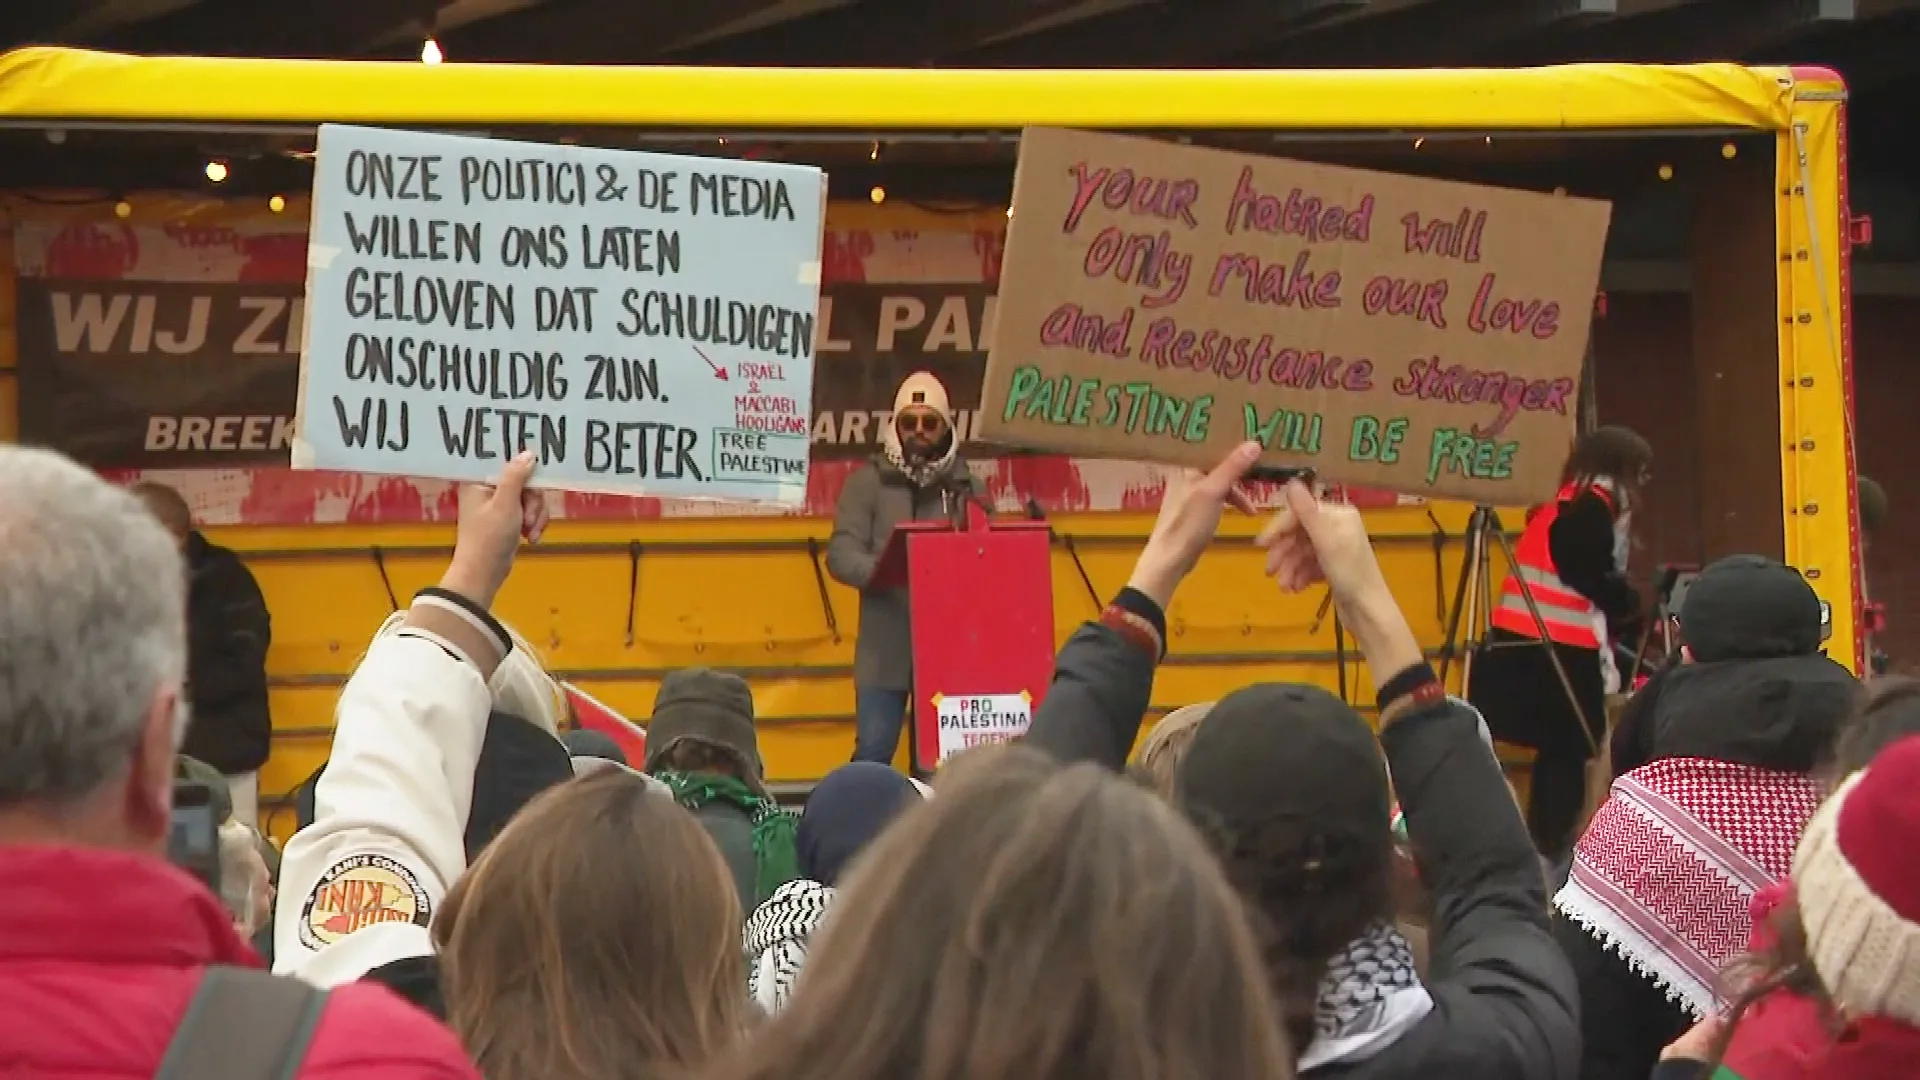 ONZE POLITICI & DE MEDIA
WILLEN ONS LATEN
GELOVEN DAT SCHULDIGEN
ONSCHULDIG ZIJN.
WIJ WETEN BETER.
ISRAËL
&
MACCABI
HOOLIGANS
FREE
PALESTINE
YOUR hatRed will
only make our love
and Resistance stronger
PALESTINE WILL BE FREE
WIJ
BREEK
PRO
PALESTINA
TEGEN